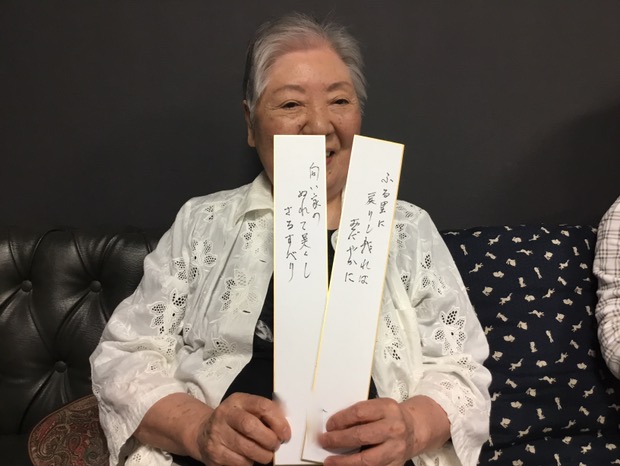 ふる里に
戻りし我れは
爽やかに
向い家の
ぬれて美くし
さるすべり